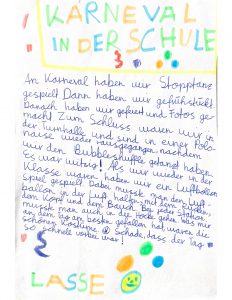 KARNEVAL
IN DER SCHULE
An Karneval haben wir Stopptanz
gespielt Dann haben wir gefrühstückt.
Danach haben wir gefeiert und Fotos ge-
macht Zum Schluss waren wir in
der Turnhalle und sind in einer Polo-
naise wieder rausgegangen nachdem
wir den Bubbleshuffle getanzt haben.
Es war witzig! Als wir wieder in der
Klasse waren haben wir ein Luftballon
spiel gespielt Dabei musste man den Luft-
ballon in der Luft halten, mit dem Rücken,
dem Kopf und dem Bauch. Bei jeder Station
musste man auch in die Hocke gehen. Was mir
an dem Tag am besten gefallen hat waren die
schönen Kostüme Schade, dass der Tag
so schnell vorbei war!
LASSE